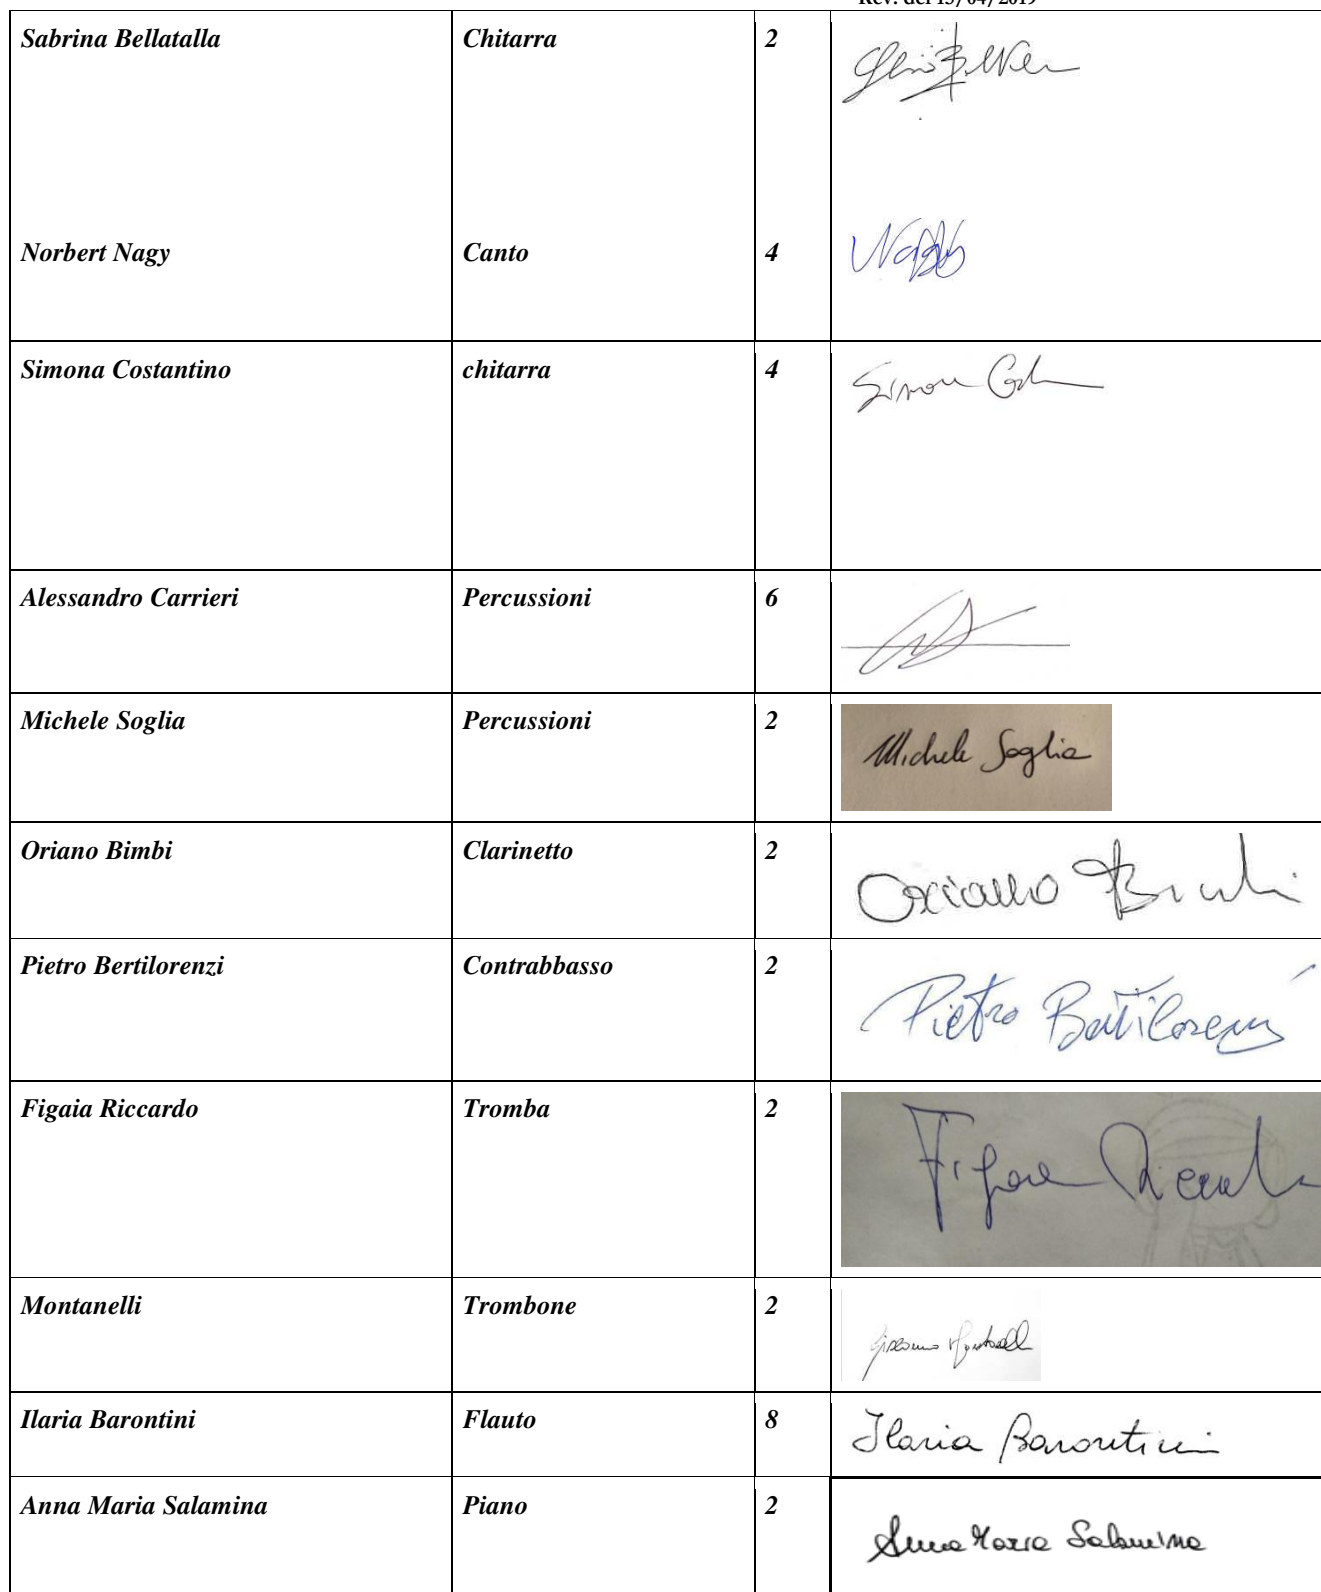 Rev. del 15/04/2019
Sabrina Bellatalla Chitarra 2
Norbert Nagy Canto 4 Nagy
Simona Costantino chitarra 4
Alessandro Carrieri Percussioni 6
Michele Soglia Percussioni 2 Michele Soglia
Oriano Bimbi Clarinetto 2 Oriano Bimbi
Pietro Bertilorenzi Contrabbasso 2 Pietro Bertilorenzi
Figaia Riccardo Tromba 2 Figaia Riccardo
Montanelli Trombone 2 Giacomo Montanelli
Ilaria Barontini Flauto 8 Ilaria Barontini
Anna Maria Salamina Piano 2 Anna Maria Salamina